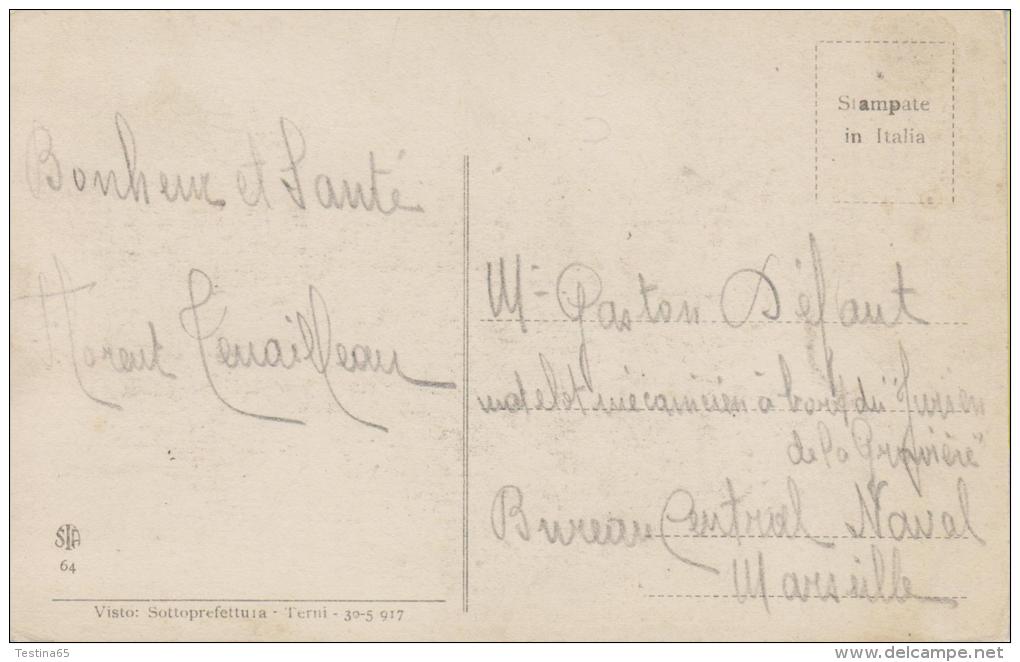 Stampate
in Italia
Bonheur et Santé
Florent Tenailleau
Mr Gaston Défaut
matelot mécanicien à bord du "Jurien
de la Gravière"
Bureau Central Naval
Marseille
STA
64
Visto: Sottoprefettura - Terni - 30-5 917
Testina65
delcampe.net